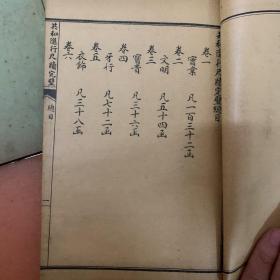 共和進行尺牘完璧總目
卷一
寶業 凡一百三十二函
卷二
文明 凡五十四函
卷三
寶昔 凡三十六函
卷四
牙行 凡七十二函
卷五
衣飾 凡三十八函
卷六
共和進行尺牘完璧 總目
一